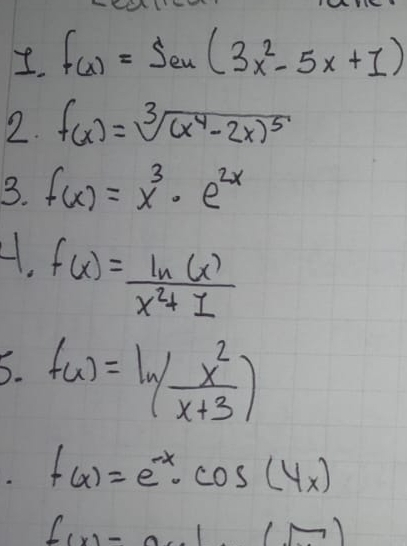 1. f(x) = Sen (3x² - 5x + 1)
2. f(x) = ∛(x⁴ - 2x)⁵
3. f(x) = x³ · e²ˣ
4. f(x) = ln (x) / x² + 1
5. f(x) = ln (x² / x + 3)
. f(x) = e⁻ˣ · cos (4x)
f(x) =